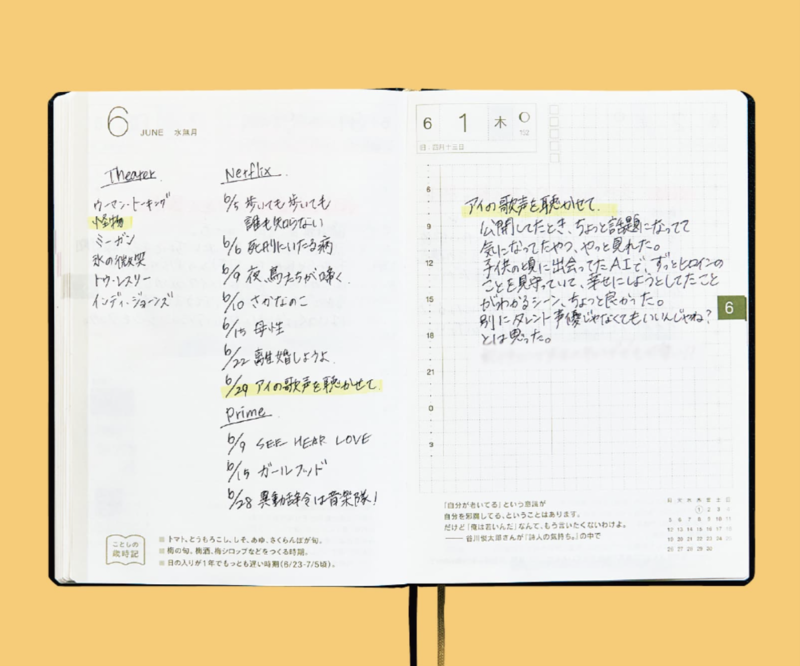 6 JUNE 水無月
Theater
ウーマン・トーキング
怪物
ミーガン
氷の微笑
トゥ・レスリー
インディ・ジョーンズ
Netflix
6/5 歩いても歩いても
誰も知らない
6/6 死刑にいたる病
6/9 夜、鳥たちが啼く
6/10 さかなのこ
6/15 母性
6/22 離婚しようよ
6/29 アイの歌声を聴かせて
prime
6/9 SEE HEAR LOVE
6/15 ガールフッド
6/28 異動辞令は音楽隊!
ことしの
歳時記
■ トマト、とうもろこし、しそ、あゆ、さくらんぼが旬。
■ 梅の旬。梅酒、梅シロップなどをつくる時期。
■ 日の入りが1年でもっとも遅い時期(6/23-7/5頃)。
6 1 木
旧:四月十三日
6
9
アイの歌声を聴かせて
公開してたとき、ちょっと話題になってて
気になってたやつ、やっと見れた。
子供の頃に出会ってたAIで、ずっとヒロインの
ことを見守っていて、幸せにしようとしてたこと
がわかるシーン、ちょっと良かった。
別にタレント声優じゃなくてもいいんじゃね?
とは思った。
15
18
21
0
3
6
「自分が老いてる」という意識が
自分を邪魔してる、ということはあります。
だけど「俺は若いんだ」なんて、もう言いたくないわけよ。
—— 谷川俊太郎さんが『詩人の気持ち。』の中で
月 火 水 木 金 土 日
1 2 3 4
5 6 7 8 9 10 11
12 13 14 15 16 17 18
19 20 21 22 23 24 25
26 27 28 29 30